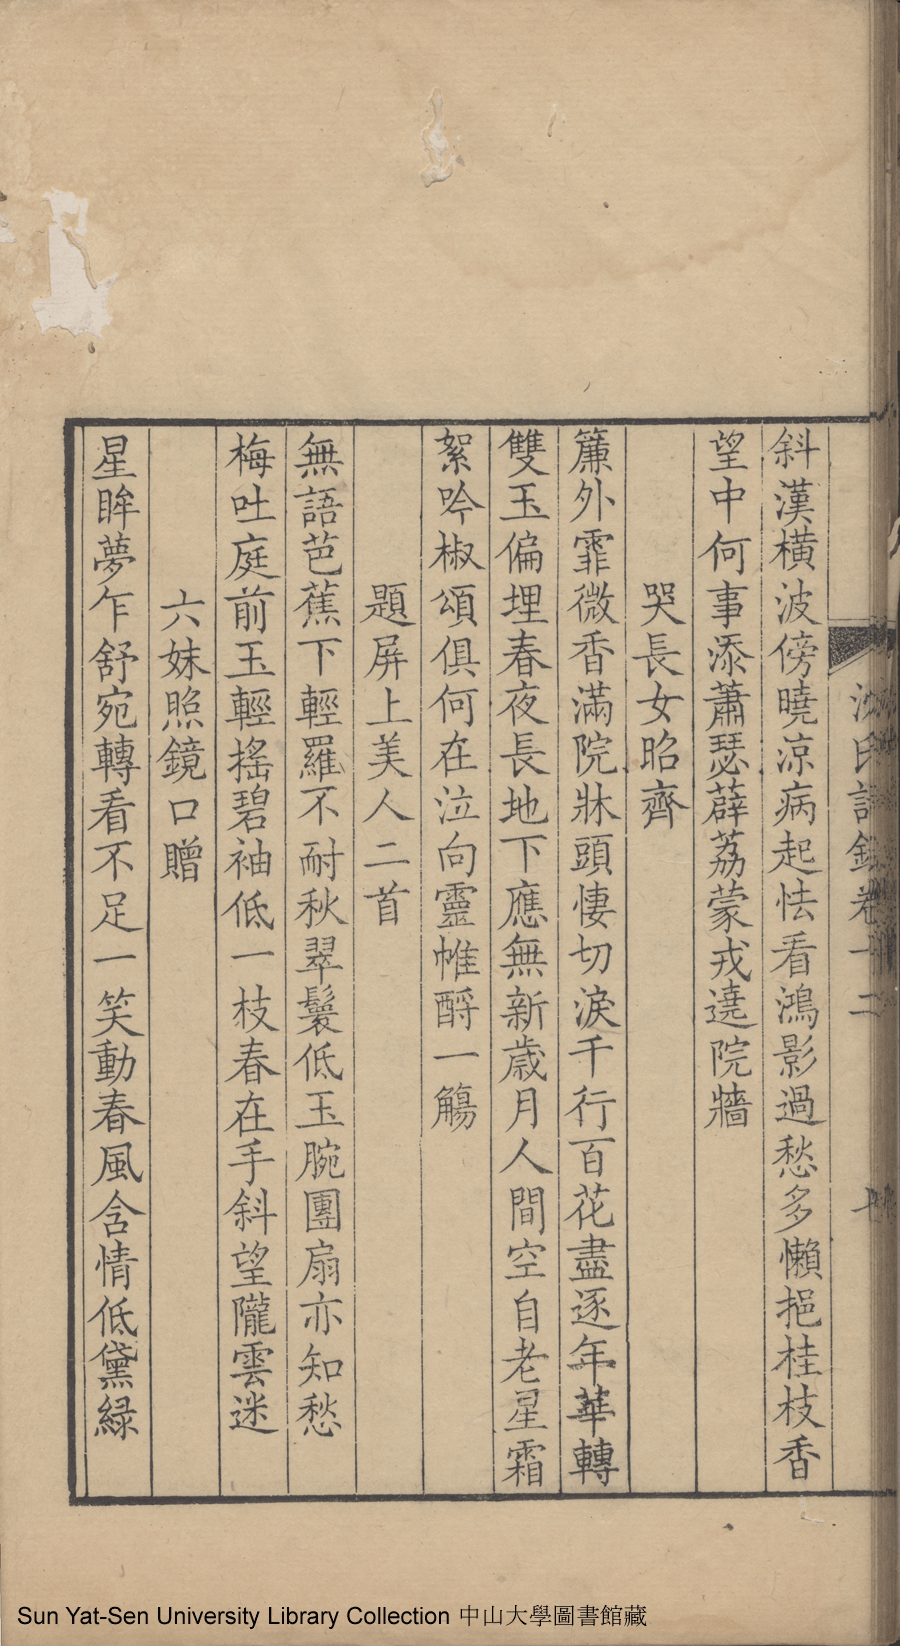 斜漢橫波傍曉涼病起怯看鴻影過愁多懶挹桂枝香
望中何事添蕭瑟薜荔蒙戎遶院牆
哭長女昭齊
簾外霏微香滿院牀頭悽切淚千行百花盡逐年華轉
雙玉偏埋春夜長地下應無新歲月人間空自老星霜
絮吟椒頌俱何在泣向靈帷酹一觴
題屏上美人二首
無語芭蕉下輕羅不耐秋翠鬟低玉腕團扇亦知愁
梅吐庭前玉輕搖碧袖低一枝春在手斜望隴雲迷
六妹照鏡口贈
星眸夢乍舒宛轉看不足一笑動春風含情低黛緑
Sun Yat-Sen University Library Collection 中山大學圖書館藏